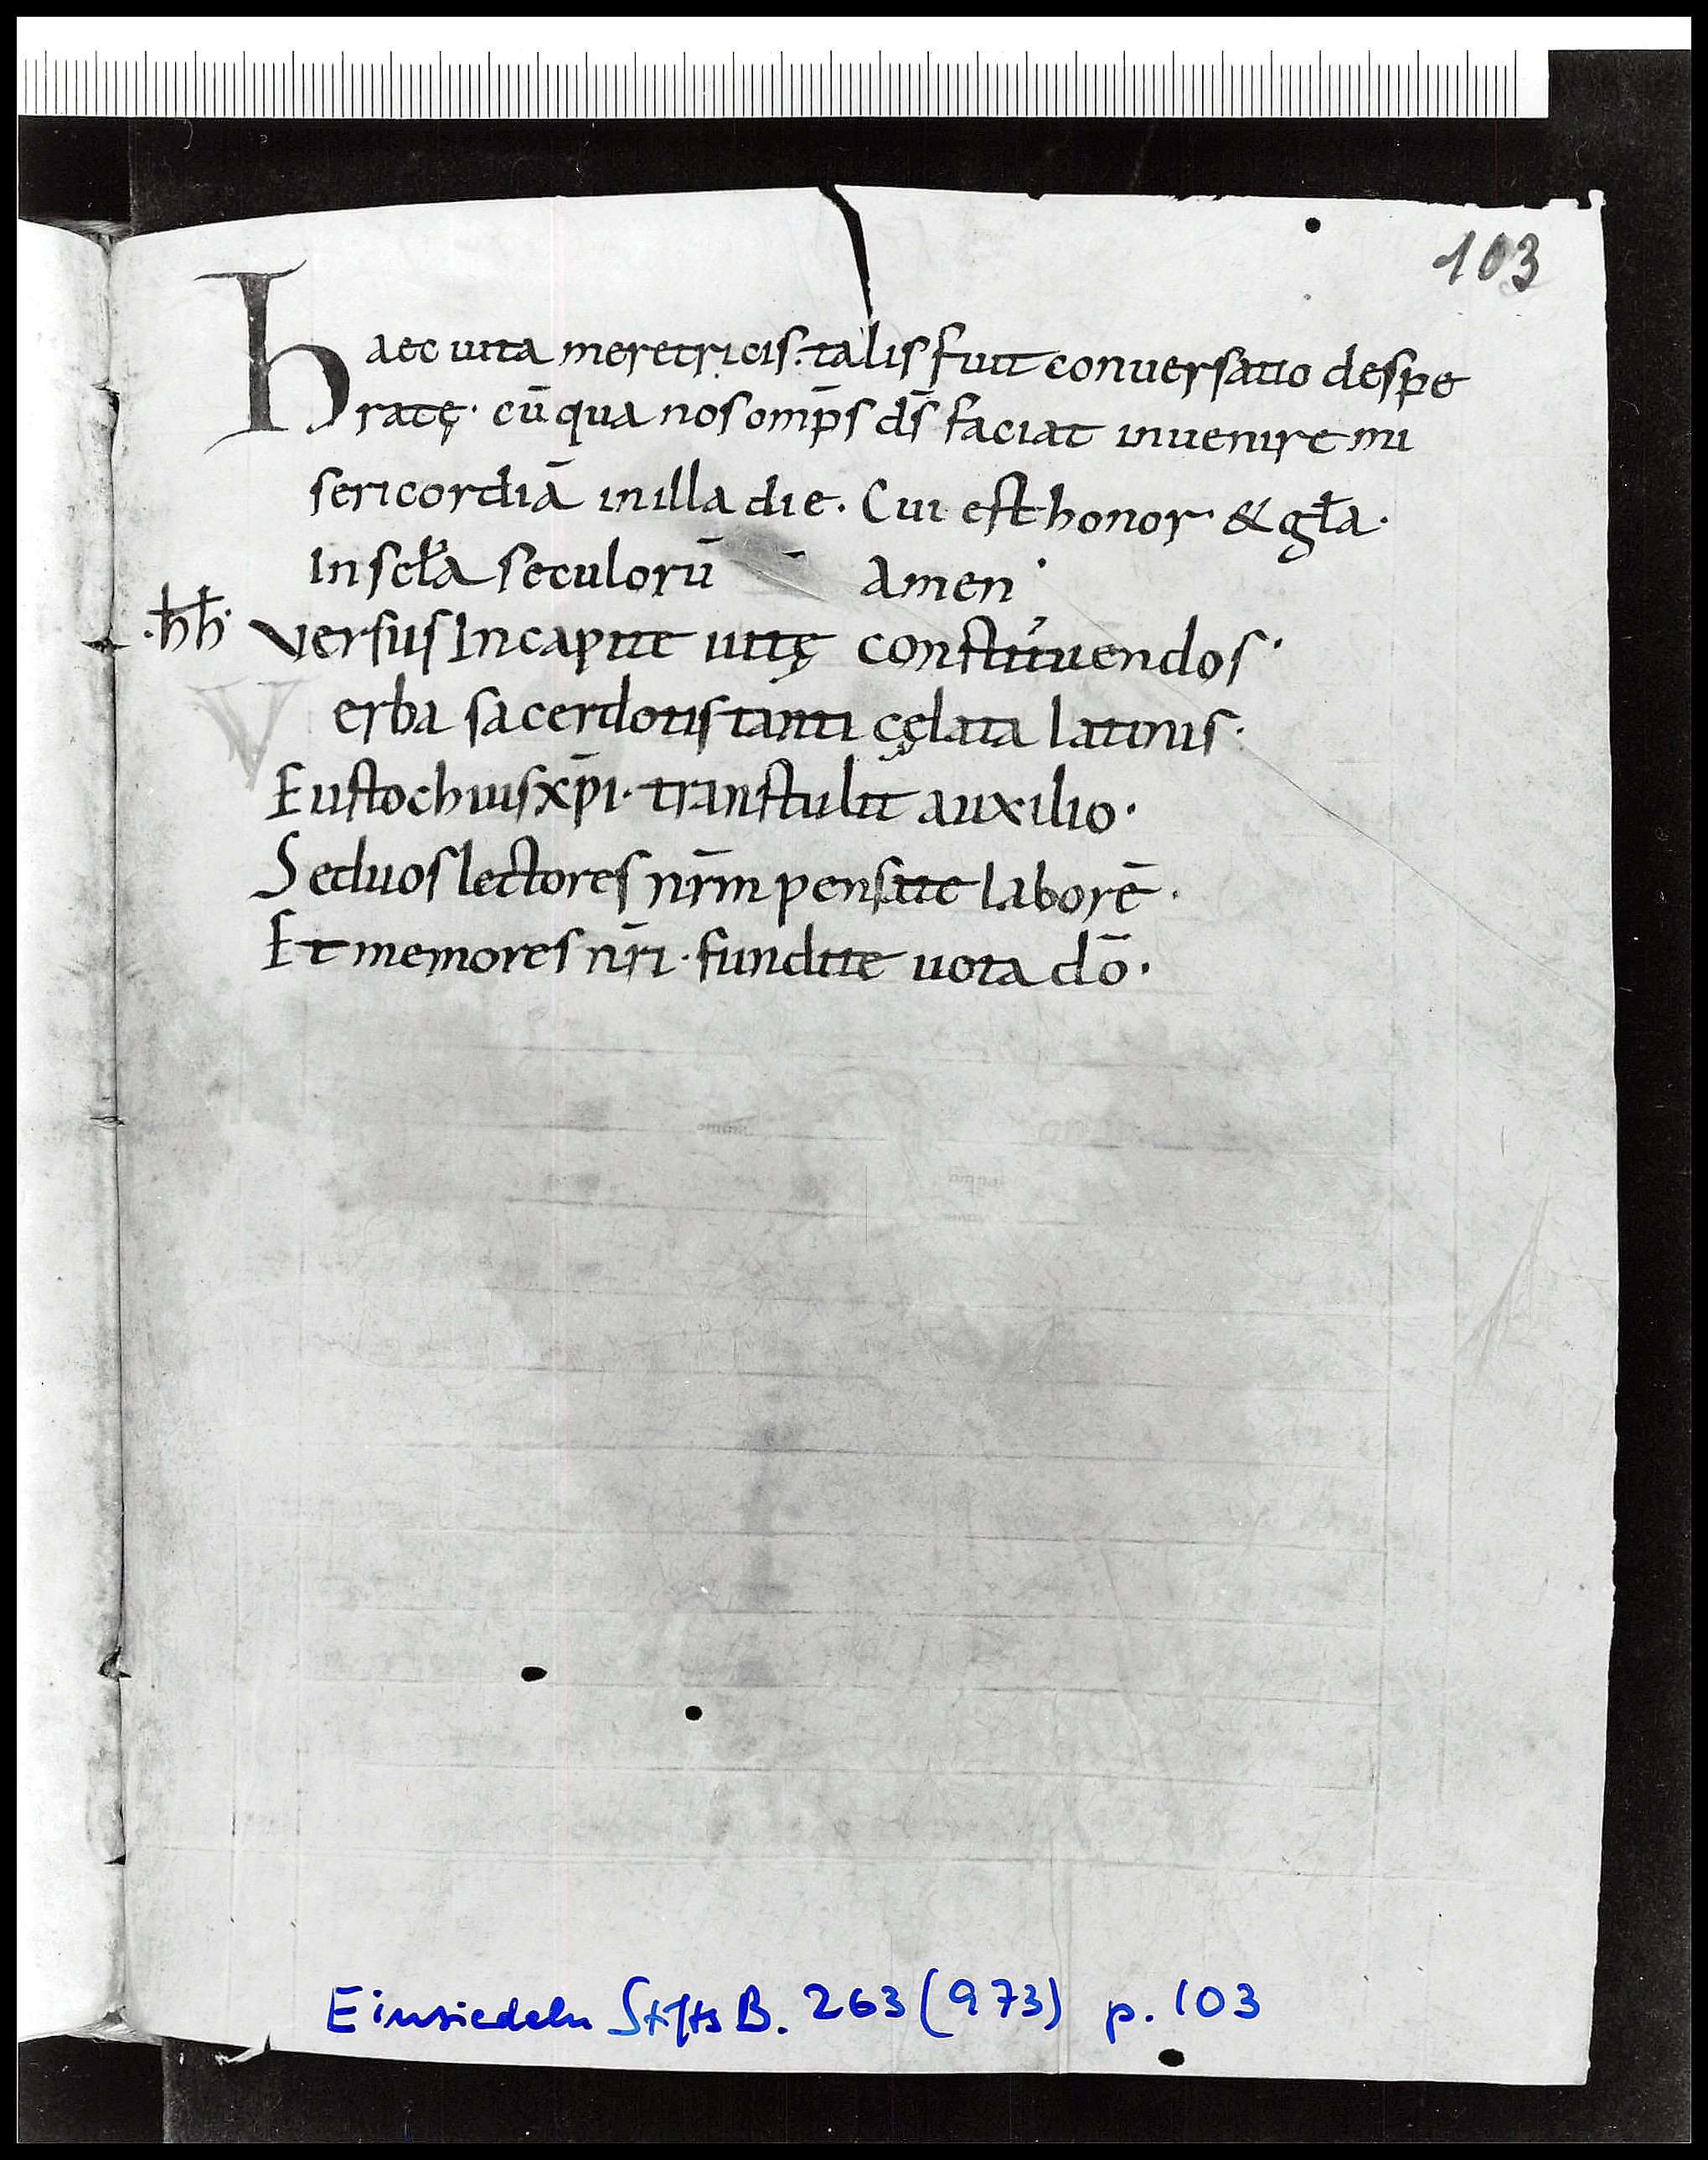 103
Haec uita meretricis. talis fuit conuersatio despe
ratę· cū qua nos omp̄s ds̄ faciat inuenire mi
sericordiā in illa die. Cui est honor & gła·
In scła seculorū amen·
·ħħ· Versus In capite uitę constituendos·
Verba sacerdotis tanti cęlata latinis·
Eustochius xp̄i· transtulit auxilio·
Sed uos lectores nr̄m pensate laborē·
Et memores nr̄i· fundite uota dō·
Einsiedeln StiftsB. 263 (973) p. 103